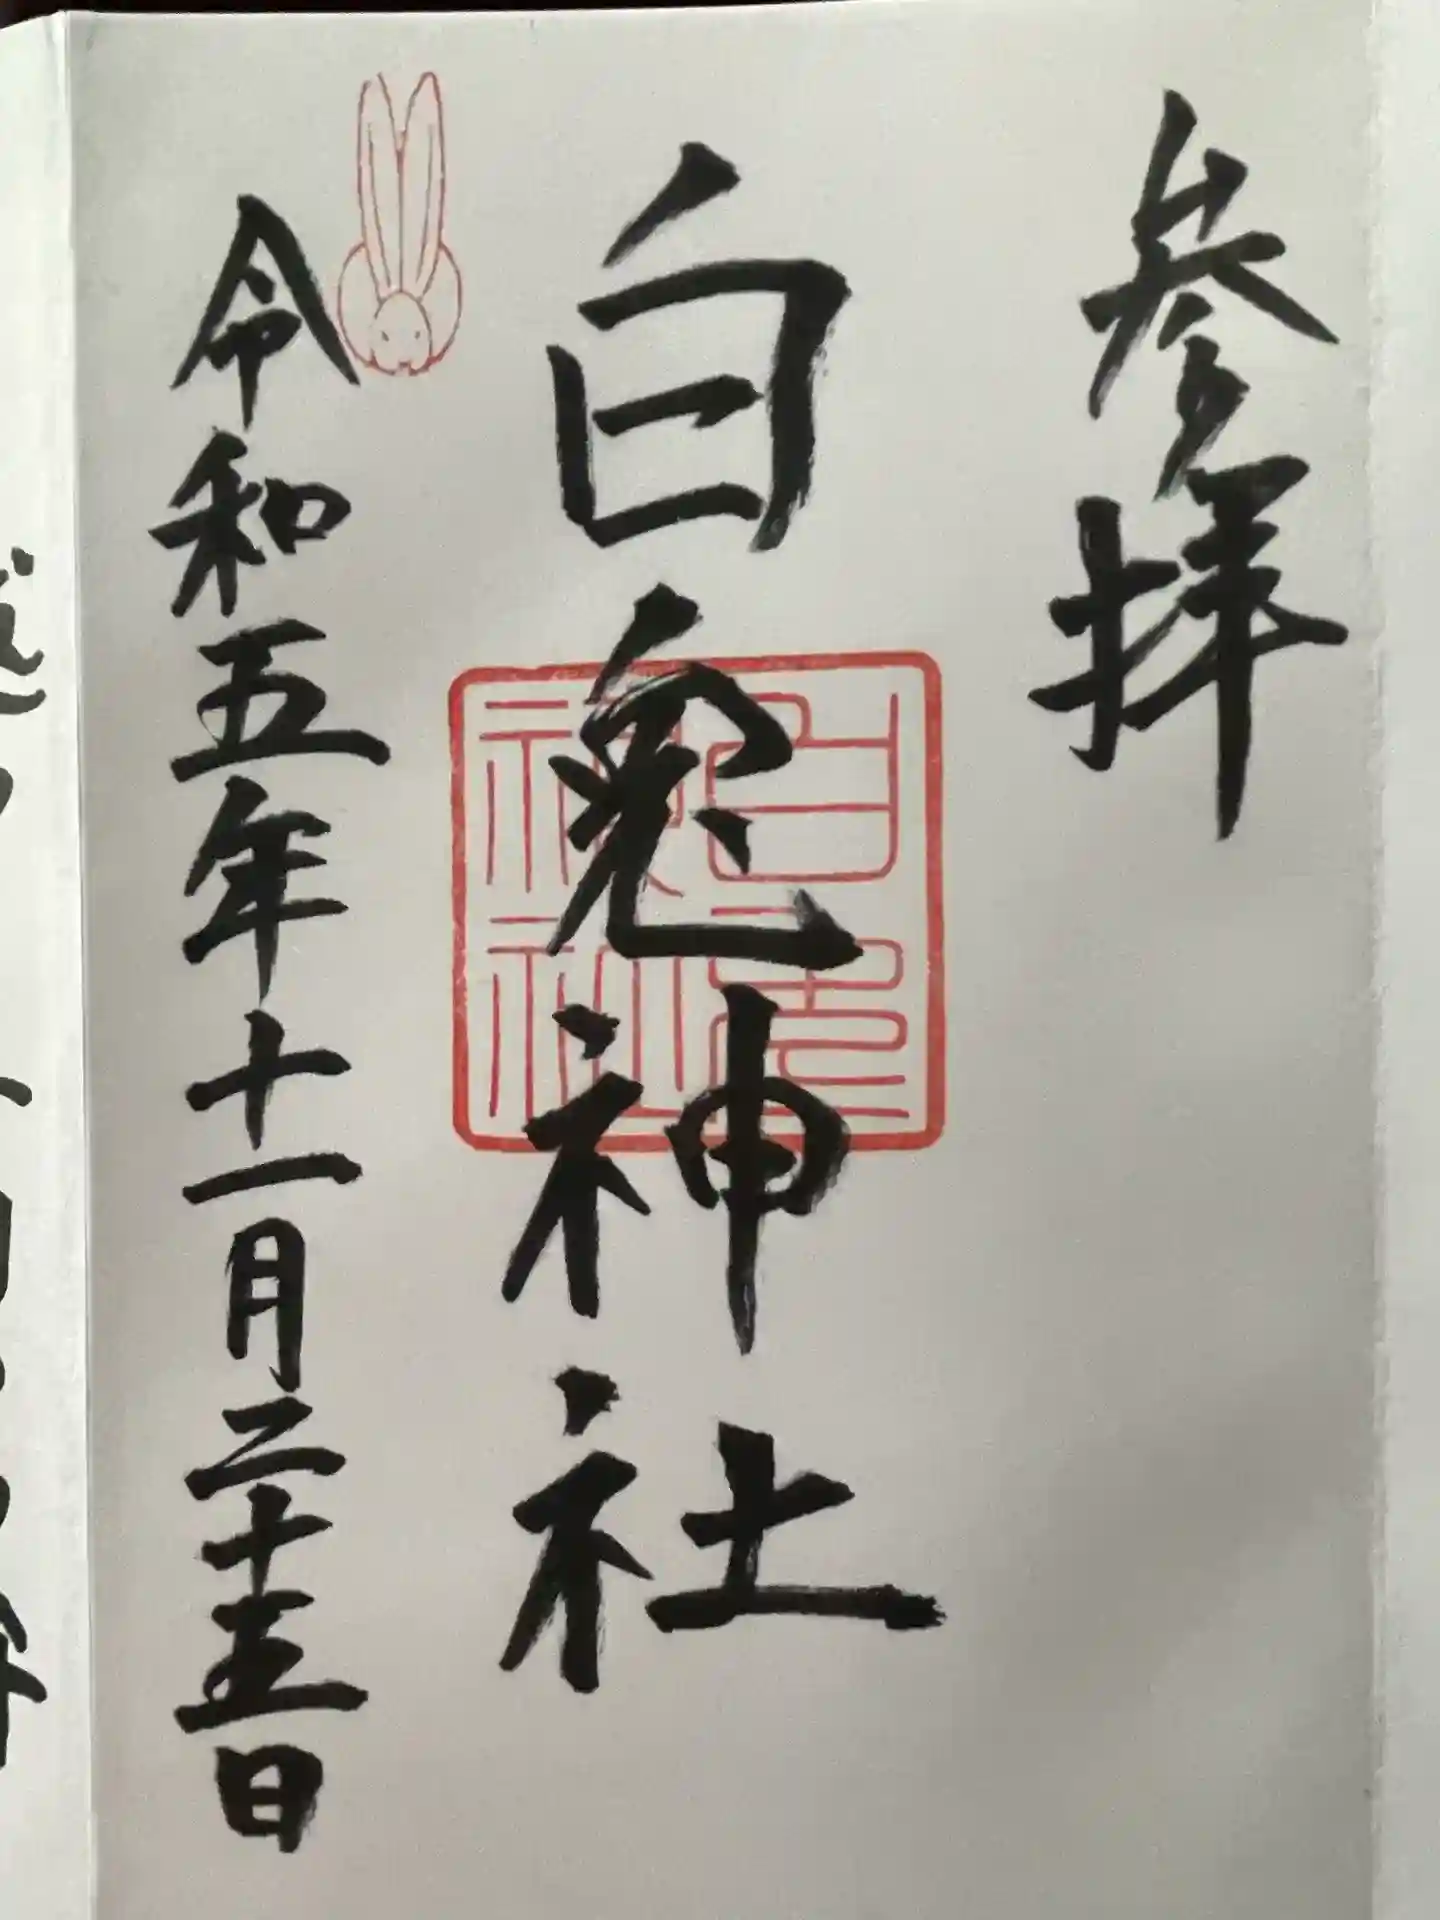 参拝
白兎神社
白兎神社
令和五年十一月二十五日